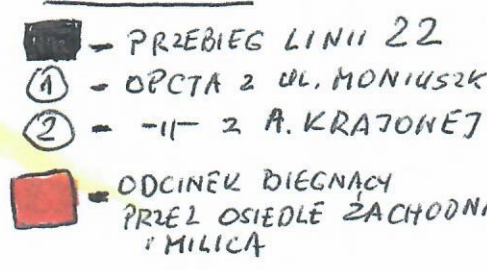 - PRZEBIEG LINII 22
1 - OPCJA Z UL. MONIUSZK
2 - -||- Z A. KRAJOWEJ
- ODCINEK BIEGNĄCY
PRZEZ OSIEDLE ZACHODNI
I MILICA